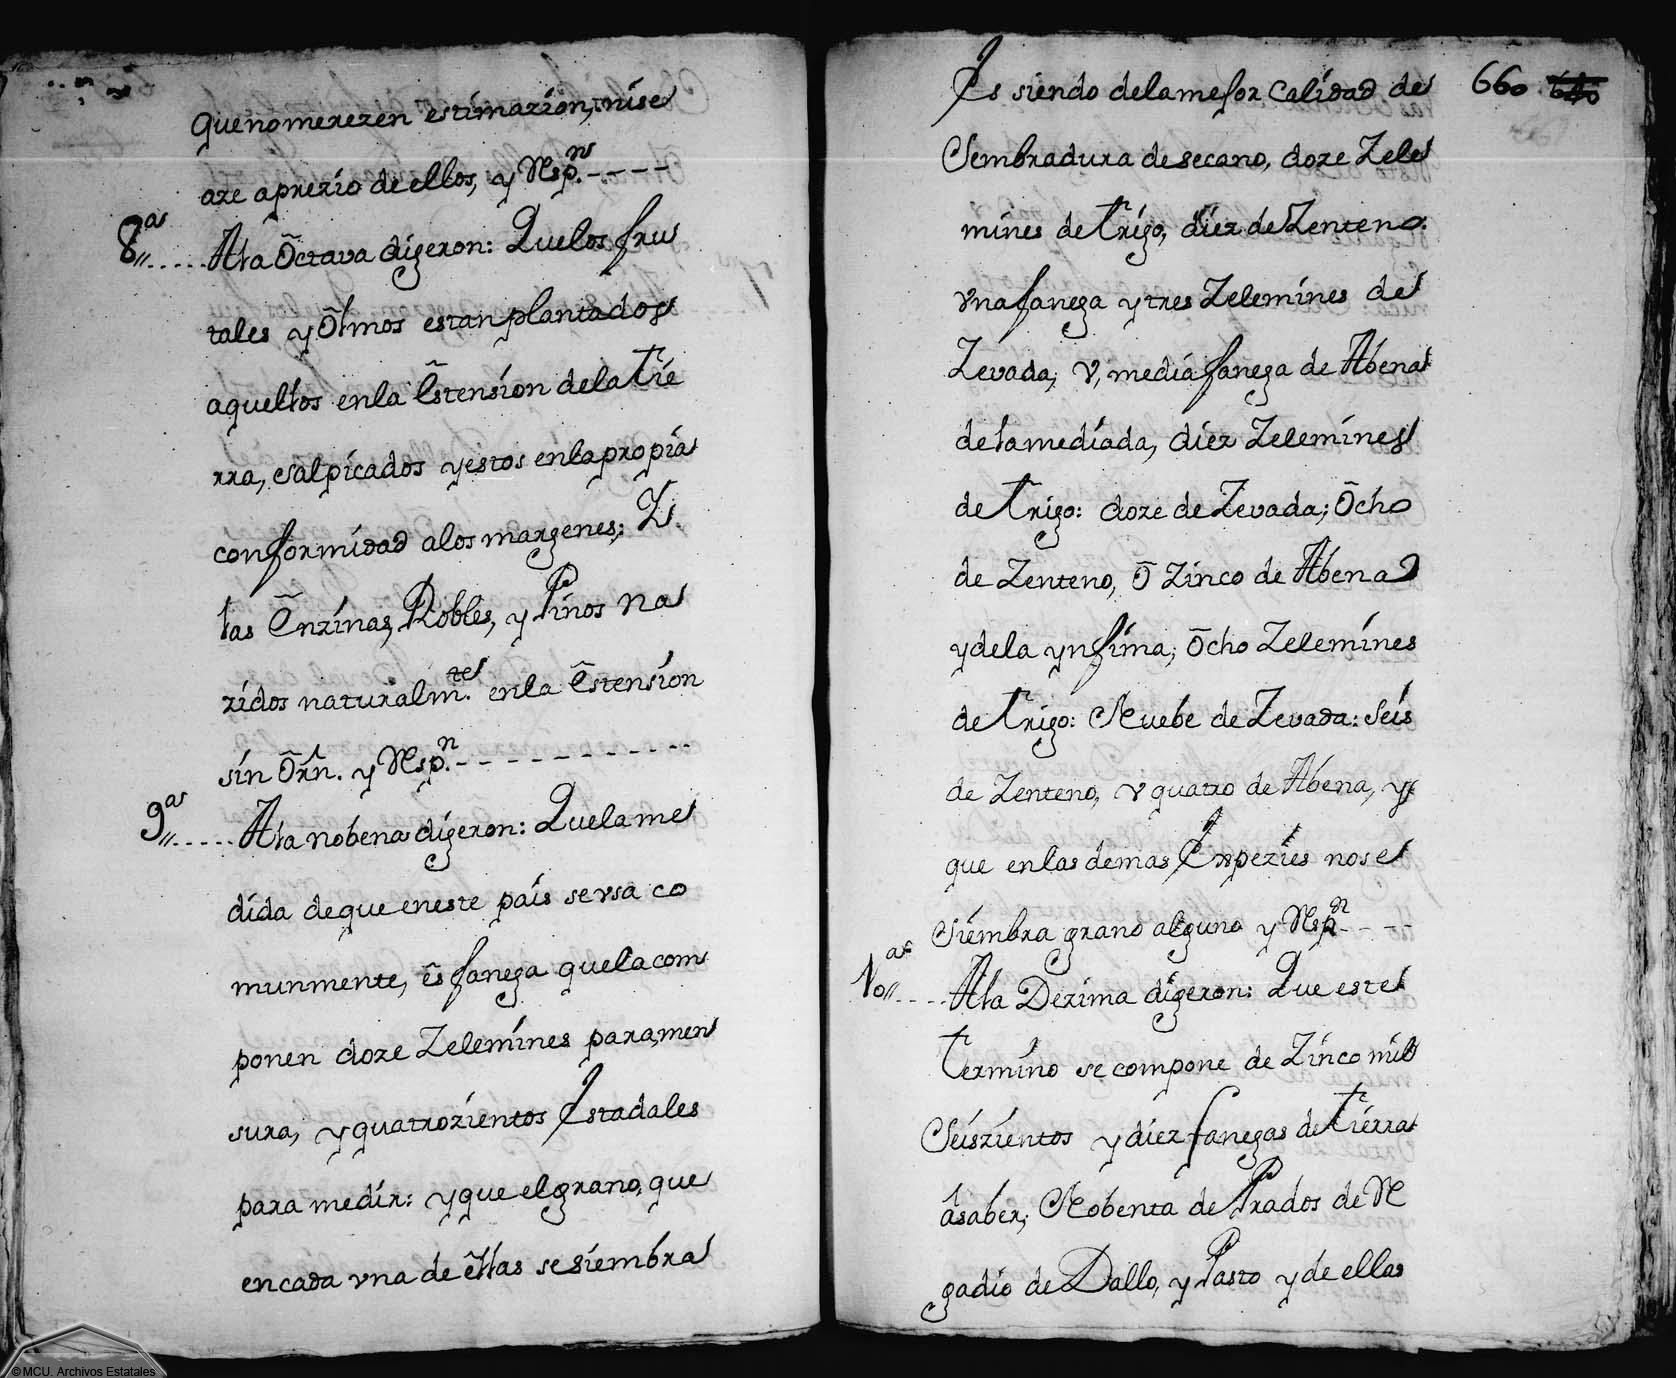 que no merezen estimazion, ni se
aze aprezio de ellos, y Resp.n
8.as A la Octava digeron: Que los fru
tales y Olmos estan plantados
aquellos en la Estension de la Tie
rra, salpicados y estos en la propia
conformidad a los margenes; Y.
las Enzinas, Robles, y Pinos na
zidos naturalm.te en la Estension
sin Orn. y Resp.n
9.as A la nobena digeron: Que la me
dida de que en este pais se vsa co
munmente, es fanega que la com
ponen doze Zelemines para men
sura, y quatrozientos Estadales
para medir: y que el grano, que
en cada vna de ellas se siembra
©MCU. Archivos Estatales
660 640
Es siendo de la mejor Calidad de
Sembradura de secano, doze Zele
mines de Trigo, diez de Zenteno
vna fanega y tres Zelemines de
Zevada, V, media fanega de Abena
de la mediada, diez Zelemines
de Trigo: doze de Zevada; Ocho
de Zenteno, O Zinco de Abena
y de la ynfima, Ocho Zelemines
de Trigo: Nuebe de Zevada: Seis
de Zenteno, v quatro de Abena, y
que en las demas Expezies no se
siembra grano alguno y Resp.n
10.as A la Dezima digeron: Que este
termino se compone de Zinco mil
Seiszientos y diez fanegas de Tierra
asaber; Nobenta de Prados de Re
gadio de Dallo, y Pasto y de ellas